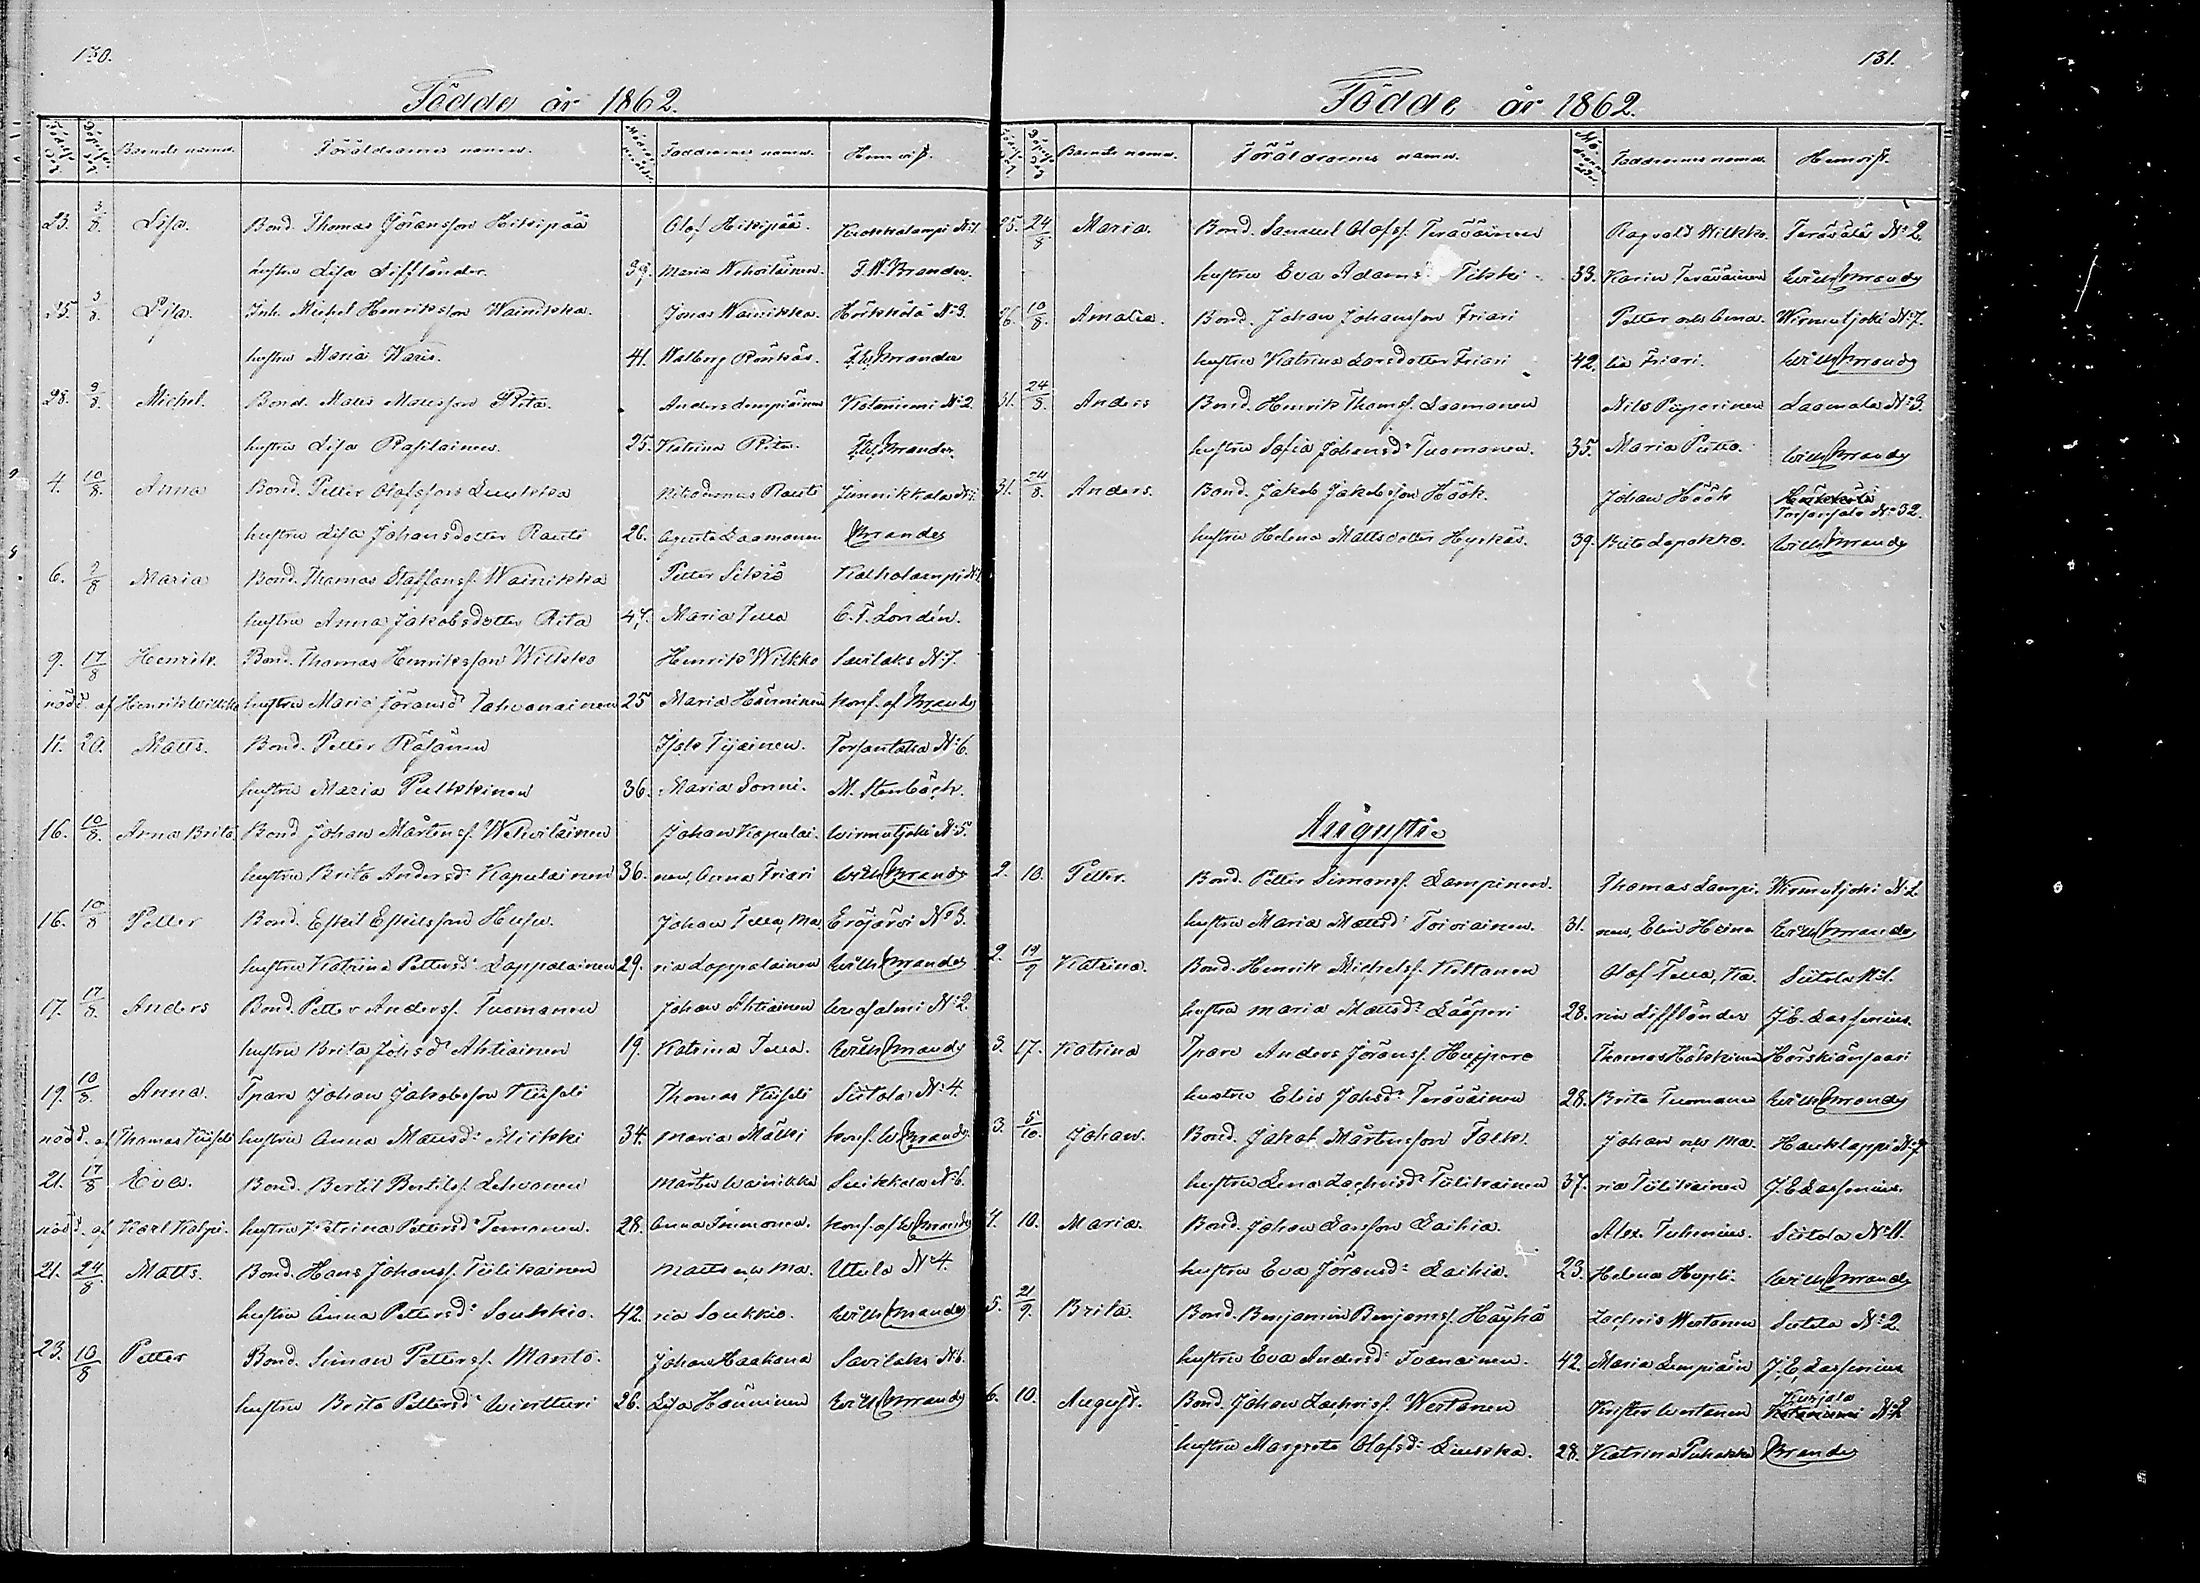 130.
Födde år 1862.
Födelse Dag Döpelse Dag Barnets namn. Föräldrarnes namn. Moders ålder Faddrarnes namn. Hemvist.
23. 3/8. Lisa. Bond. Thomas Göransson Heikipää Olof Heikipää. N:1.
hustru Lisa Liffländer. 39. Maria Wehviläinen. F.W. Brander.
25. 3/8. Lisa. Inh. Michel Henriksson Wainikka. Jonas Wainikka. N:3.
hustru Maria Waris. 41. Walborg F.W. Brander
28. 3/8. Michel. Bond. Matts Mattsson Rita. Anders Lempiäinen Kataniemi N:2.
hustru Lisa Rasilainen. 25. Katrina Rita. F.W. Brander.
4. 10/8. Anna Bond. Petter Olofsson Luukka Nikodemus Rauti Junnikkala N:1.
hustru Lisa Johansdotter Rauti 26. Agneta Laamanen Brander
6. 9/8 Maria Bond. Thomas Staffanss. Wainikka Petter Sikiö Kalholampi N:
hustru Anna Jakobsdotter Rita 47. Maria Tella C.F. Londén.
9. 17/8 Henrik Bond. Thomas Henriksson Wilkko Henrik Wilkko Savilaks N:7.
nödd. af Henrik Wilkko hustru Maria Jöransd: Tahvanainen 25 Maria Hänninen konf. af Brander
11. 20. Matts. Bond. Petter Räsänen Isak Tijainen. Torsantaka N:6.
hustru Maria Pulkkinen 36. Maria Sonni. M. Stenbäck.
16. 10/8. Anna Brita Bond Johan Mårtenss. Wehviläinen Johan Kapulai- Wirmutjoki N:5.
hustru Brita Andersd: Kapulainen 36. nen, Anna Friari Wilh Brander
16. 10/8 Petter Bond. Eskil Eskilsson Husu. Johan Tella, Ma- Eräjärvi N:3.
hustru Katrina Pettersd: Lappalainen 29. ria Lappalainen Wilh Brander
17. 17/8. Anders Bond. Petter Anderss. Tuomanen Johan Ahtiainen N:2.
hustru Brita Johsd: Ahtiainen 19. Katrina Tella. Wilh Brander
19. 10/8. Anna. Spare Johan Jakobsson Kuiseli Thomas Kuiseli Siitola N:4.
nödd. af Thomas Kuiseli hustru Anna Mattsd: Miikki 34. Maria Mälki konf. W Brander
21. 17/8 Eva. Bond. Bertil Bertilss. Lehvanen Mårten Wainikka Suikkala N:6.
nödd. af Karl Kalpi- hustru Katrina Pettersd: Temanen. 28. Anna Immonen. konf. af W Brander
21. 24/8 Matts. Bond. Hans Johanss. Tiilikainen Matts o, Ma- Utula N:4.
hustru Anna Pettersd: Soukkio. 42. ria Soukkio. Wilh Brander
23. 10/8 Petter Bond. Simon Petterss. Manto. Johan Haakana Savilaks N:6.
hustru Brita Pettersd: Winttari 26. Lisa Hänninen Wilh Brander
131.
Födde år 1862.
Födelse Dag Döpelse Dag Barnets namn. Föräldrarnes namn. Moderns ålder. Faddrarnes namn. Hemvist.
25. 24/8 Maria. Bond. Samuel Olofss. Teräväinen Ragvald Wilkko. Terävälä N:2.
hustru Eva Adams Tikki 33. Karin Teräväinen Wilh Brander
26. 10/8. Amalia. Bond. Johan Johansson Friari Petter och Ama- Wirmutjoki N:7.
hustru Katrina Larsdotter Friari 42. lia Friari. Wilh Brander
31. 24/8. Anders Bond. Henrik Thomss. Laamanen Nils Piiparinen Laamala N:3.
hustru Sofia Johansd: Tuomanen. 35. Maria Putto. Wilh Brander
31. 24/8. Anders. Bond. Jakob Jakobsson Höök. Johan Höök
Torsansalo N:32.
hustru Helena Mattsdotter Hyrkäs. 39. Brita Lapakko. Wilh Brander
Augusti.
2. 10. Petter. Bond. Petter Simonss. Lampinen. Thomas Lampi- Wirmutjoki N:2
hustru Maria Mattsd: Toiviainen. 31. nen, Elin Heina Wilh Brander
2. 19/9 Katrina. Bond. Henrik Michelss. Kekkanen Olof Tella, Ka- Siitola N:1.
hustru Maria Mattsd: Lääperi 28. rin Liffländer J.E. Lassenius.
3. 17. Katrina Spare Anders Jöranss. Huppone Thomas Härkkinen Härskiänsaari
hustru Elin Johsd: Teräväinen 28. Brita Tuomanen Wilh Brander
3. 5/10. Johan. Bond. Jakob Mårtensson Talk. Johan och Ma- Hauklappi N:7
hustru Lena Zachrisd: Tiilikainen 37. ria Tiilikainen J.E. Lassenius.
4. 10. Maria. Bond. Johan Larsson Laikia. Alex. Tuhenius. Siitola N:11.
hustru Eva Jöransd: Laikia. 23. Helena Hupli. Wilh Brander
5. 21/9. Brita. Bond. Benjamin Benjamss. Häyhä Zachris Westanen Siitola N:2.
hustru Eva Andersd: Ivanainen. 42. Maria Lempiäin J.E. Lassenius
6. 10. August. Bond. Johan Zachriss. Westanen Krister Westanen Kurjala N:2
hustru Margreta Olofsd: Luukka. 28. Katrina Puhakka Brander